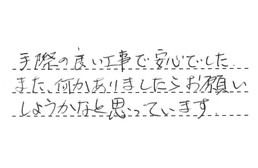 手際の良い工事で安心でした
また、何かありましたらお願い
しようかなと思っています